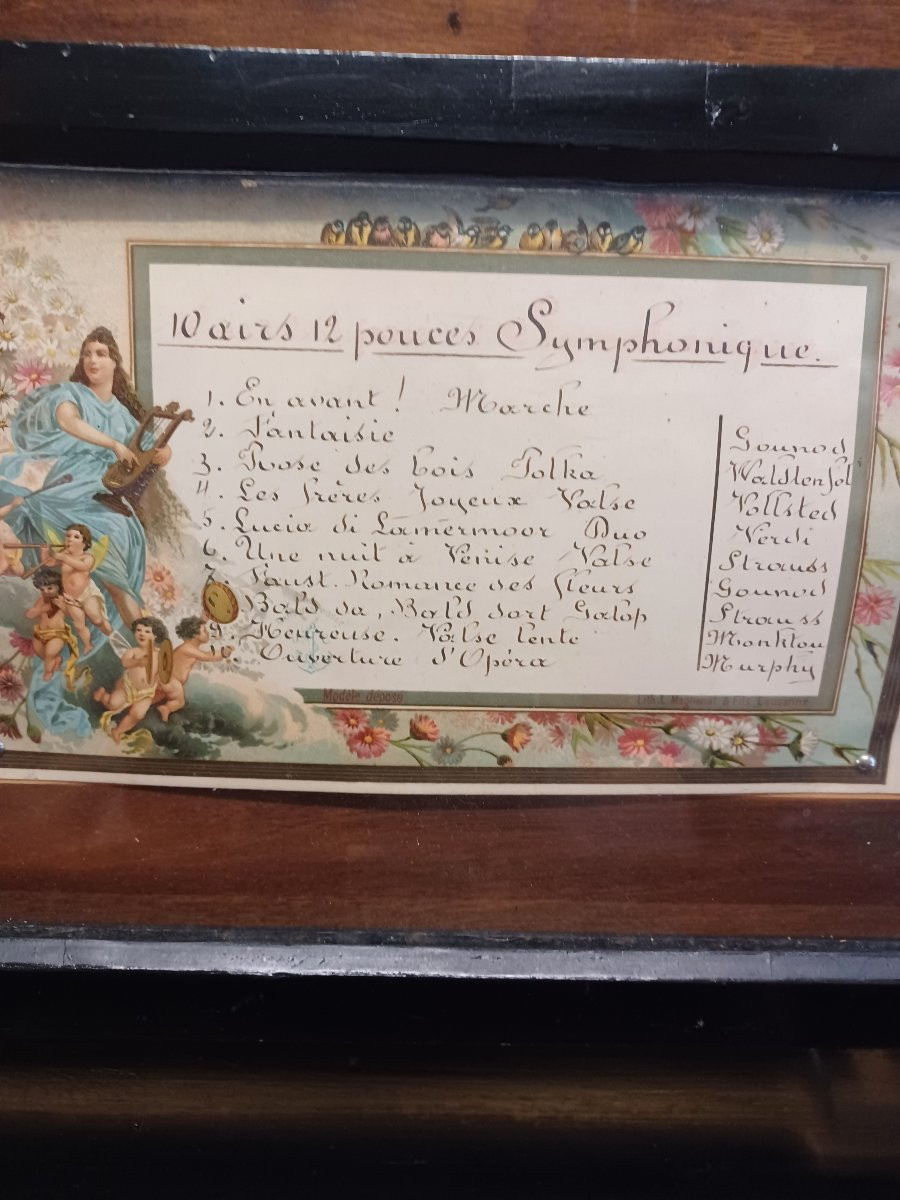 10 airs 12 pouces Symphonique.
1. En avant! Marche
2. Fantaisie Gounod
3. Rose des bois Polka
4. Les frères Joyeux Valse Vollsted
5. Lucia di Lamermoor Duo Verdi
6. Une nuit à Venise Valse Strauss
7. Faust. Romance des fleurs Gounod
Bald da, Bald dort Galop Strauss
9. Heureuse. Valse lente Monktou
10. Ouverture d'Opéra Murphy
Modèle déposé